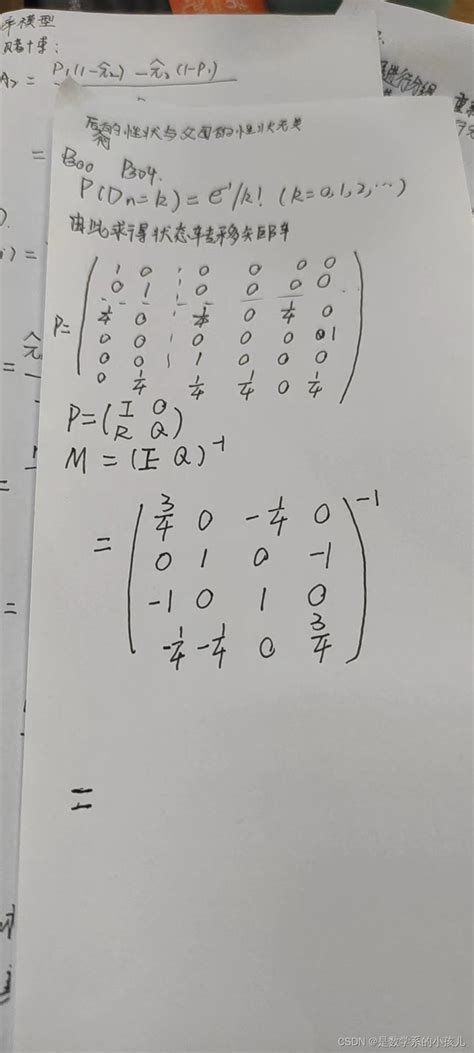 率模型
A₂ = P₁(1-π̂₂) - π̂₂(1-P₁)
的性状与父母的性状无关
P300 P304.
P(Dn=k) = e⁻¹/k! (k=0,1,2,…)
由此求得状态转移矩阵
P=
1 0 0 0 0 0
0 1 0 0 0 0
1/4 0 1/4 0 1/4 0
0 0 0 0 0 1
0 0 1 0 0 0
0 1/4 1/4 1/4 0 1/4
P=(I O
R Q)
M = (I Q)⁻¹
=
3/4 0 -1/4 0
0 1 0 -1
-1 0 1 0
-1/4 -1/4 0 3/4
-1
=
CSDN @是数学系的小孩儿